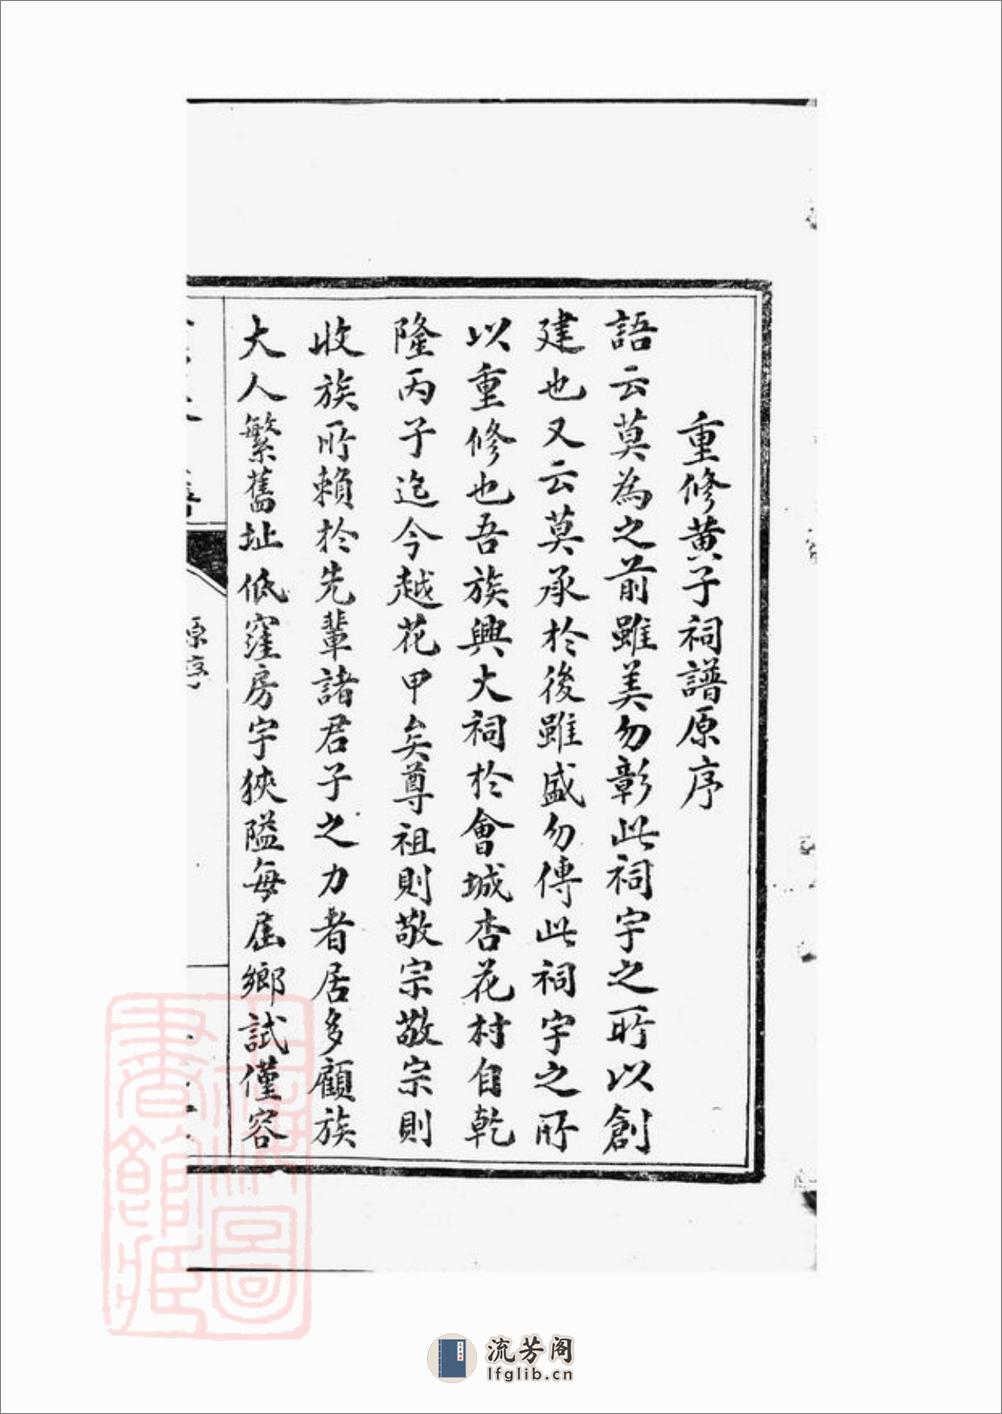 重修黄子祠譜原序
語云莫為之前雖美勿彰此祠宇之所以創
建也又云莫承於後雖盛勿傳此祠宇之所
以重修也吾族興大祠於會城杏花村自乾
隆丙子迄今越花甲矣尊祖則敬宗敬宗則
收族所賴於先輩諸君子之力者居多顧族
大人繁舊址低窪房宇狹隘每屆鄉試僅容
原序
上海圖書館藏
流芳阁
lfglib.cn